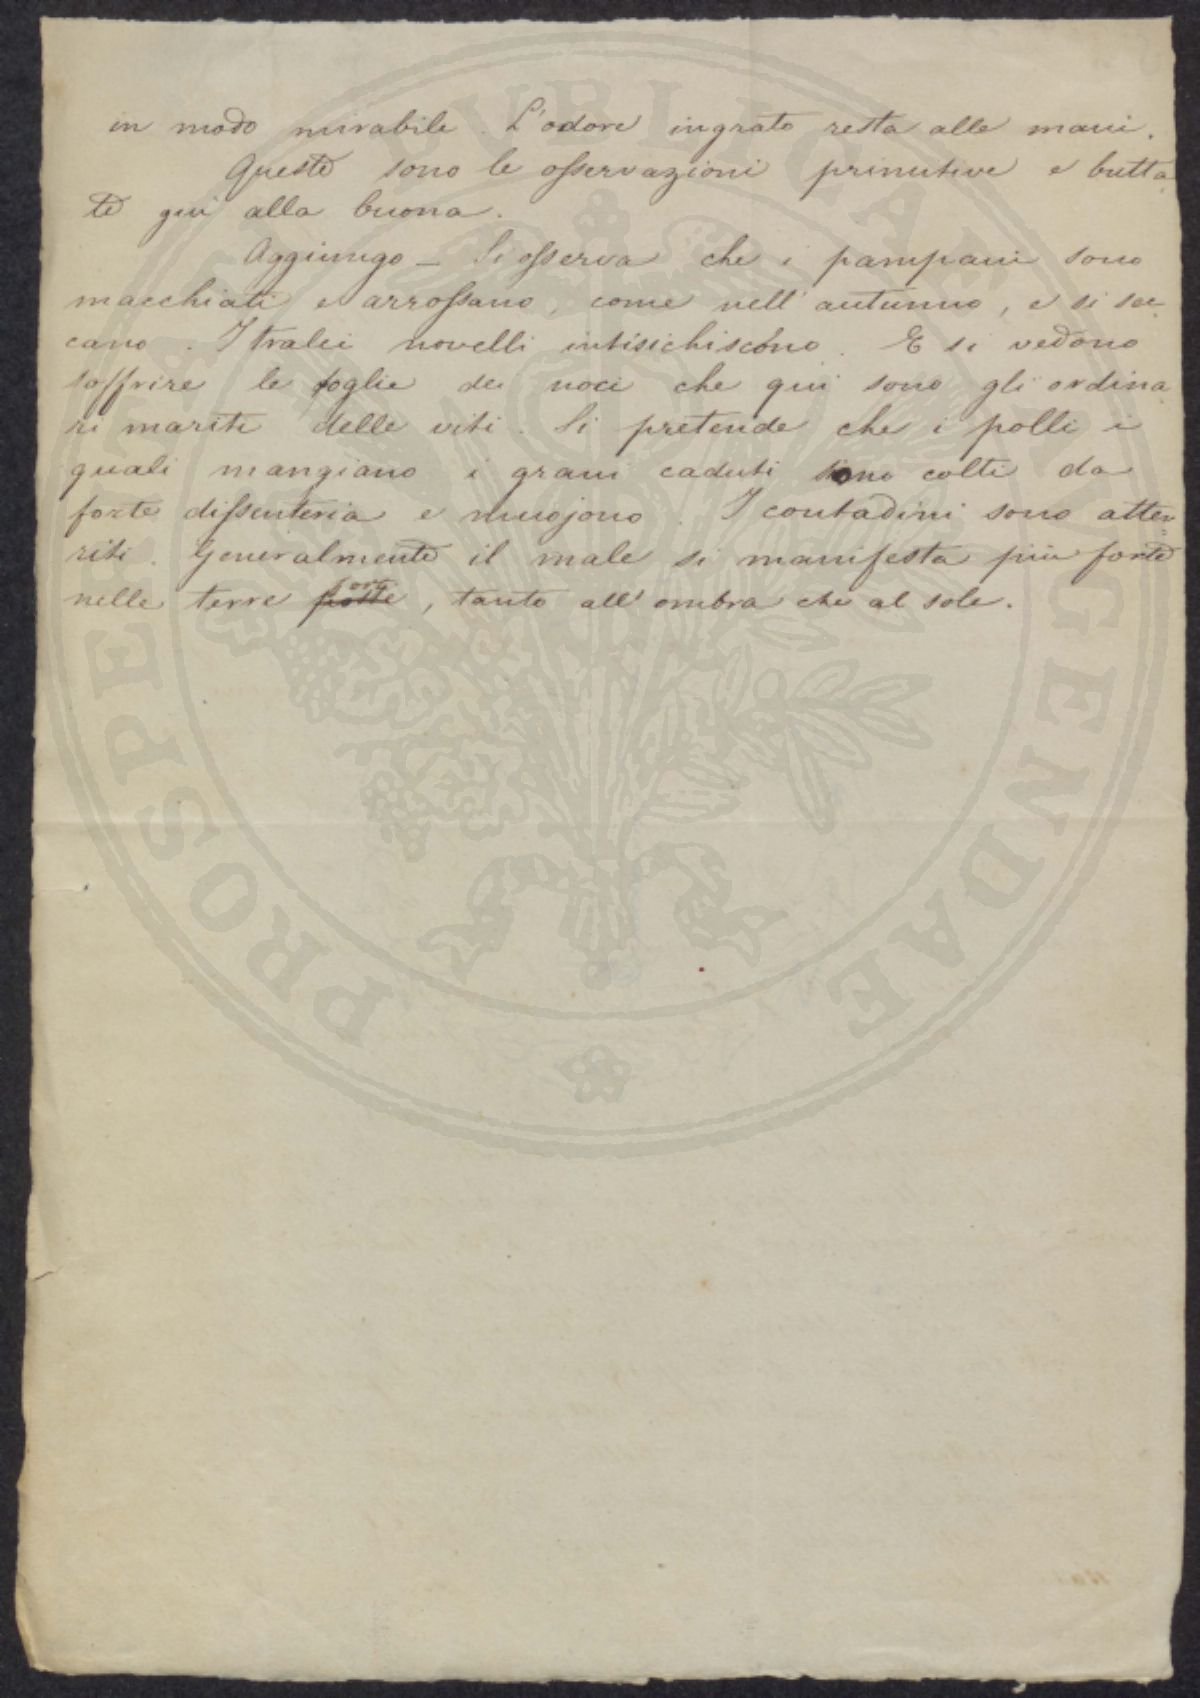 in modo mirabile. L'odore ingrato resta alle mani.
Queste sono le osservazioni primitive e butta
te qui alla buona.
Aggiungo – Si osserva che i pampani sono
macchiati e arrossano, come nell'autunno, e si sec-
cano. I tralci novelli intisichiscono. E si vedono
soffrire le foglie dei noci che qui sono gli ordina
ri mariti delle viti. Si pretende che i polli i
quali mangiano i grani caduti sono colti da
forte dissenteria e muojono. I contadini sono atter=
riti. Generalmente il male si manifesta più forte
nelle terre forti, tanto all'ombra che al sole.
PROSPERITATI PVBLICAE AVGENDAE